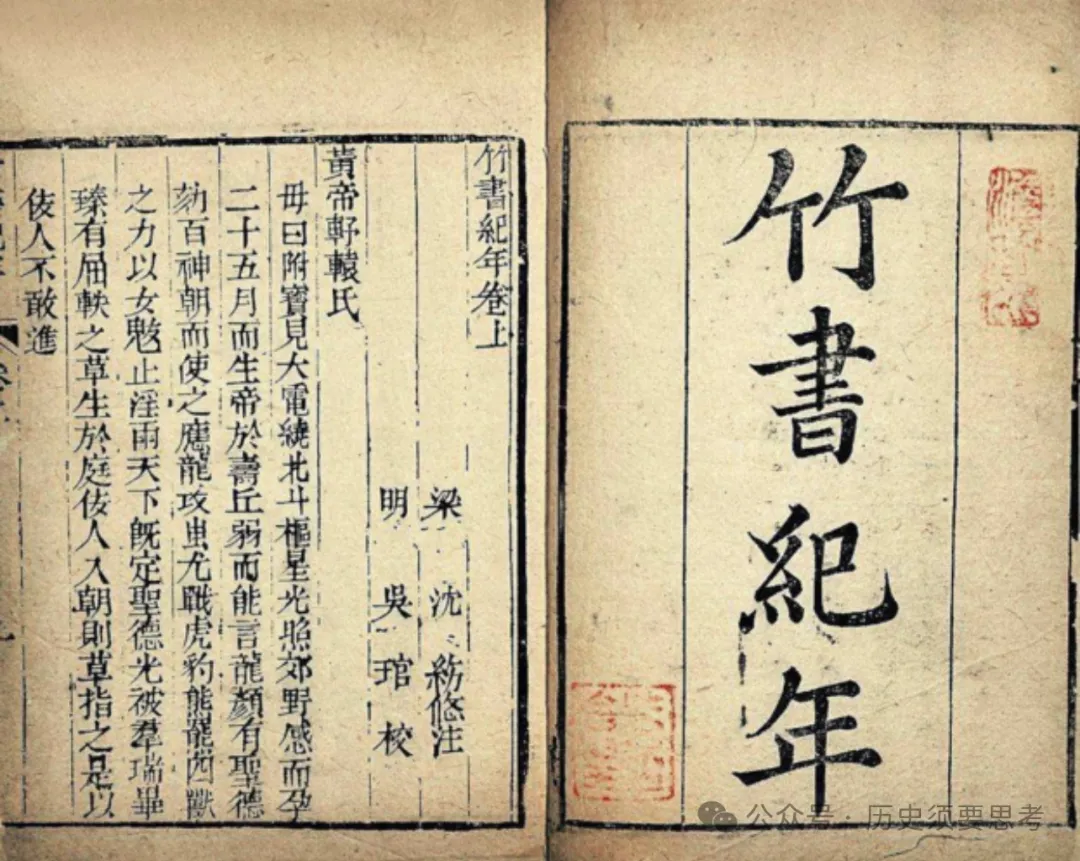 竹書紀年
竹書紀年卷上
梁 沈 約附注
明 吳 琯 校
黃帝軒轅氏
母曰附寶見大電繞北斗樞星光照郊野感而孕
二十五月而生帝於壽丘弱而能言龍顏有聖德
劾百神朝而使之應龍攻蚩尤戰虎豹熊羆四獸
之力以女魃止淫雨天下既定聖德光被羣瑞畢
臻有屈軼之草生於庭佞人入朝則草指之是以
佞人不敢進
公众号·历史须要思考